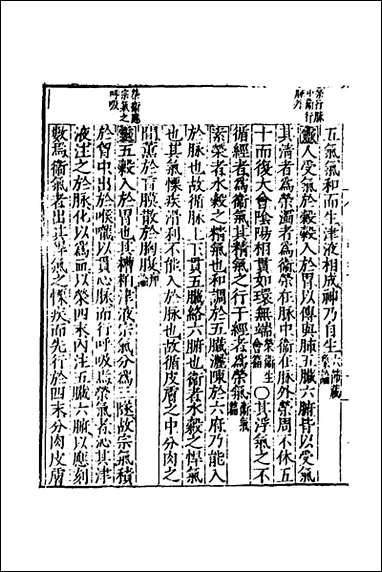 榮行脈
中衛行
脈外
五氣氣和而生津液相成神乃自生 六節藏象論
靈人受氣於穀穀入於胃以傳與肺五臟六腑皆以受氣
其清者為榮濁者為衛榮在脈中衛在脈外榮周不休五
十而復大會陰陽相貫如環無端 榮衛生會篇 〇其浮氣之不
循經者為衛氣其精氣之行于經者為榮氣 衛氣篇
素榮者水穀之精氣也和調於五臟灑陳於六府乃能入
於脈也故循脈上下貫五臟絡六腑也衛者水穀之悍氣
也其氣慓疾滑利不能入於脈也故循皮膚之中分肉之
間薰於肓膜散於胸腹 痺論
榮衛應
宗氣之
呼吸
靈五穀入於胃也其糟粕津液宗氣分為三隧故宗氣積
於胸中出於喉嚨以貫心脈而行呼吸焉榮氣者泌其津
液注之於脈化以為血以榮四末內注五臟六腑以應刻
數焉衛氣者出其悍氣之慓疾而先行於四末分肉皮膚